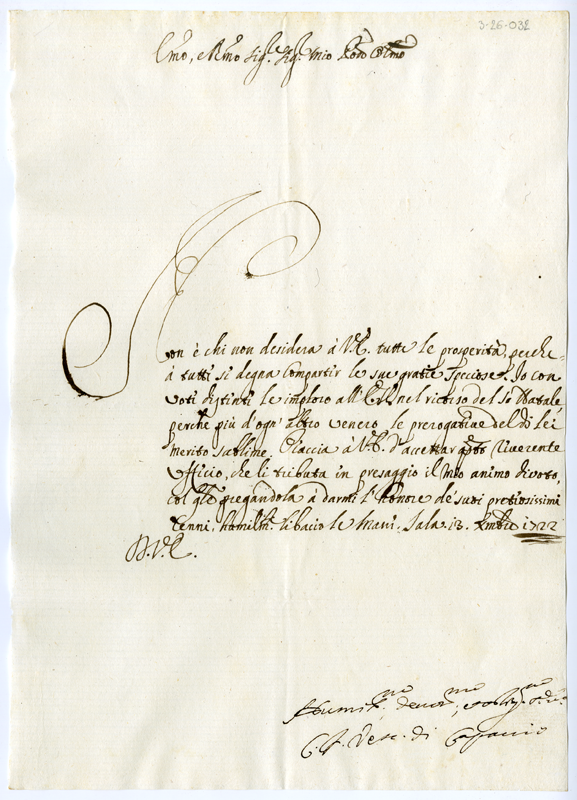 3-26-032
Emo, e Rmo Sig.re Sig.r mio Pron Colmo
Non è chi non desidera à V.E. tutte le prosperità, perche
à tutti si degna compartir le sue gratie speciose. Io con
voti distinti le imploro all'E.V. nel ricorso del Sto Natale
perche più d'ogn' altro venero le prerogative del di lei
merito sublime. Piaccia à V.E. d'accettar qsto riverente
Officio, che li tributa in presaggio il mio animo divoto,
col qle pregandola à darmi l'honore de' suoi pretiosissimi
Cenni, humilte li bacio le mani. Sala 13. Xmbre 1722
D.V.E.
Humilmo devotmo, et oblig.mo
C. F. Vesc. di Capaccio